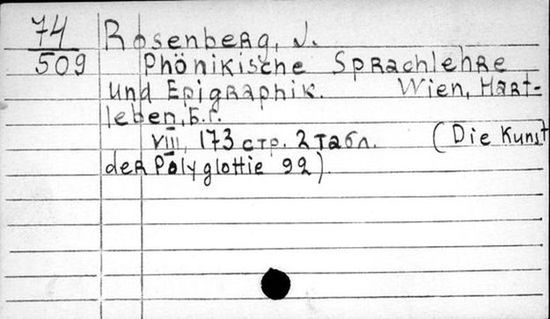 74
509
Rosenberg, J.
Phönikische Sprachlehre
und Epigraphik. Wien, Hart-
leben, б.г.
VIII, 173 стр. 2 табл. (Die Kunst
der Polyglottie 92).